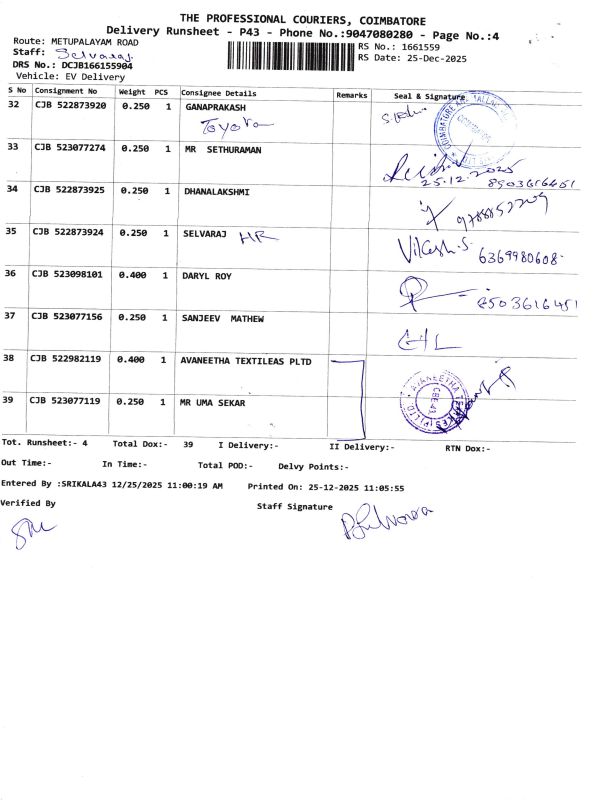 THE PROFESSIONAL COURIERS, COIMBATORE
Delivery Runsheet - P43 - Phone No.:9047080280 - Page No.:4
Route: METUPALAYAM ROAD
RS No.: 1661559
Staff: Selvaraj
RS Date: 25-Dec-2025
DRS No.: DCJB166155904
Vehicle: EV Delivery
S No Consignment No Weight PCS Consignee Details Remarks Seal & Signature
32 CJB 522873920 0.250 1 GANAPRAKASH
Toyota
33 CJB 523077274 0.250 1 MR SETHURAMAN
25.12.2025
8903616451
34 CJB 522873925 0.250 1 DHANALAKSHMI
35 CJB 522873924 0.250 1 SELVARAJ HR
Vikash.S 6369980608
36 CJB 523098101 0.400 1 DARYL ROY
8503616451
37 CJB 523077156 0.250 1 SANJEEV MATHEW
38 CJB 522982119 0.400 1 AVANEETHA TEXTILEAS PLTD
AVANEETHA
CBE-43
39 CJB 523077119 0.250 1 MR UMA SEKAR
Tot. Runsheet:- 4 Total Dox:- 39 I Delivery:- II Delivery:- RTN Dox:-
Out Time:- In Time:- Total POD:- Delvy Points:-
Entered By :SRIKALA43 12/25/2025 11:00:19 AM Printed On: 25-12-2025 11:05:55
Verified By Staff Signature